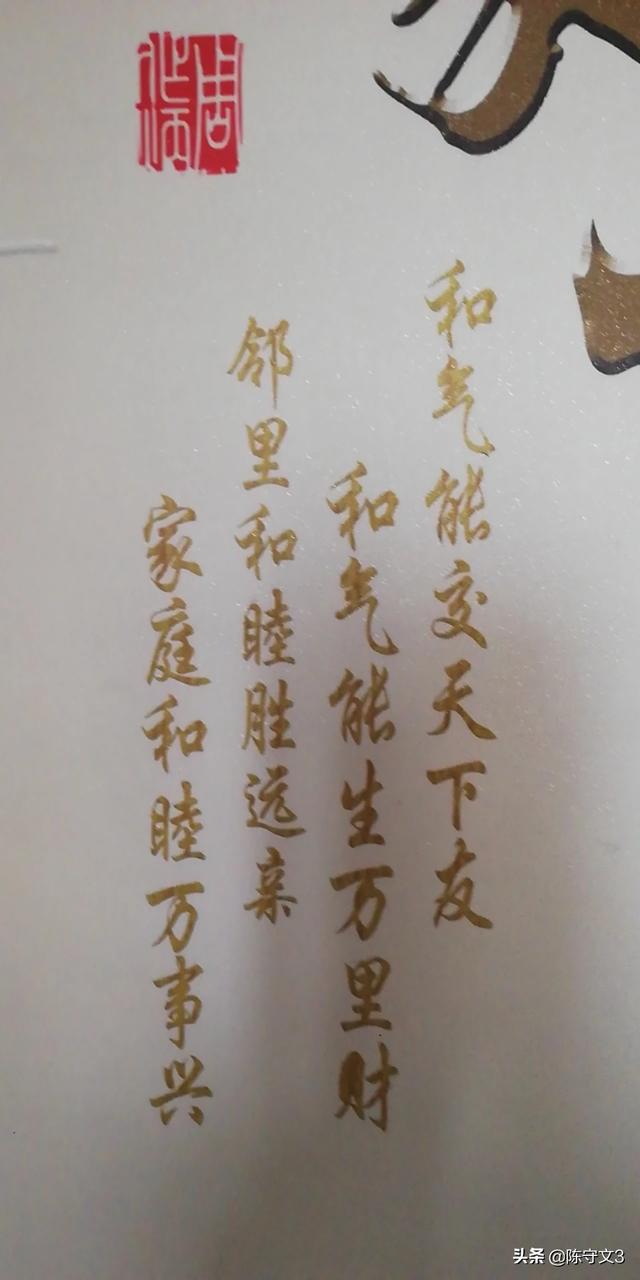 和气能交天下友
和气能生万里财
邻里和睦胜远亲
家庭和睦万事兴
周
头条 @陈守文3